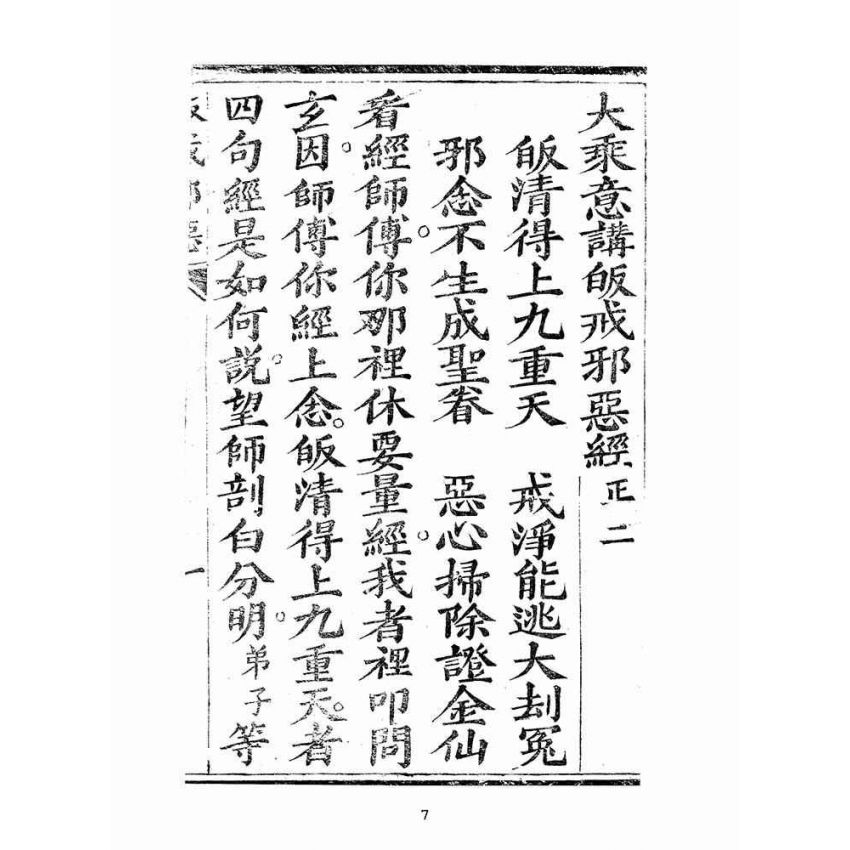 大乘意講皈戒邪惡經正二
皈清得上九重天　戒淨能逃大刦冤
邪念不生成聖眷　惡心掃除證金仙
看經師傅。你那裡休要量經。我者裡叩問
玄因。師傅你經上念。皈清得上九重天。者
四句經是如何說。望師剖白分明。弟子等
皈戒邪惡
一
7